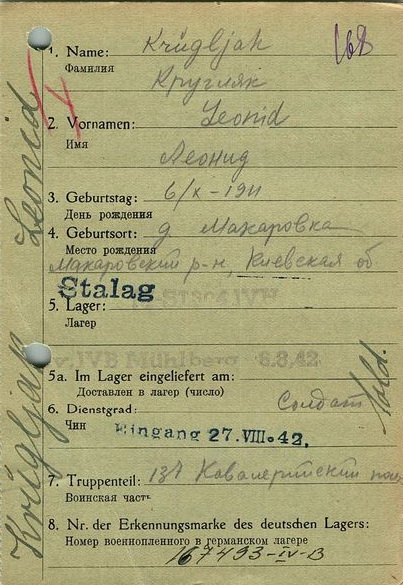 168
1. Name: Krügljak
Фамилия
Кругляк
2. Vornamen: Leonid
Имя
Леонид
3. Geburtstag: 6/X-1911
День рождения
4. Geburtsort: д Макаровка
Место рождения
Макаровский р-н, Киевская об
Stalag
5. Lager:
Лагер
IVB Mühlberg 8.42
5a. Im Lager eingeliefert am:
Доставлен в лагер (число)
6. Dienstgrad: Солдат
Чин
Sold.
Eingang 27.VIII.42.
7. Truppenteil: Кавалерийский
Воинская часть
8. Nr. der Erkennungsmarke des deutschen Lagers:
Номер военнопленного в германском лагере
167493-IV-B
Krügljak Leonid